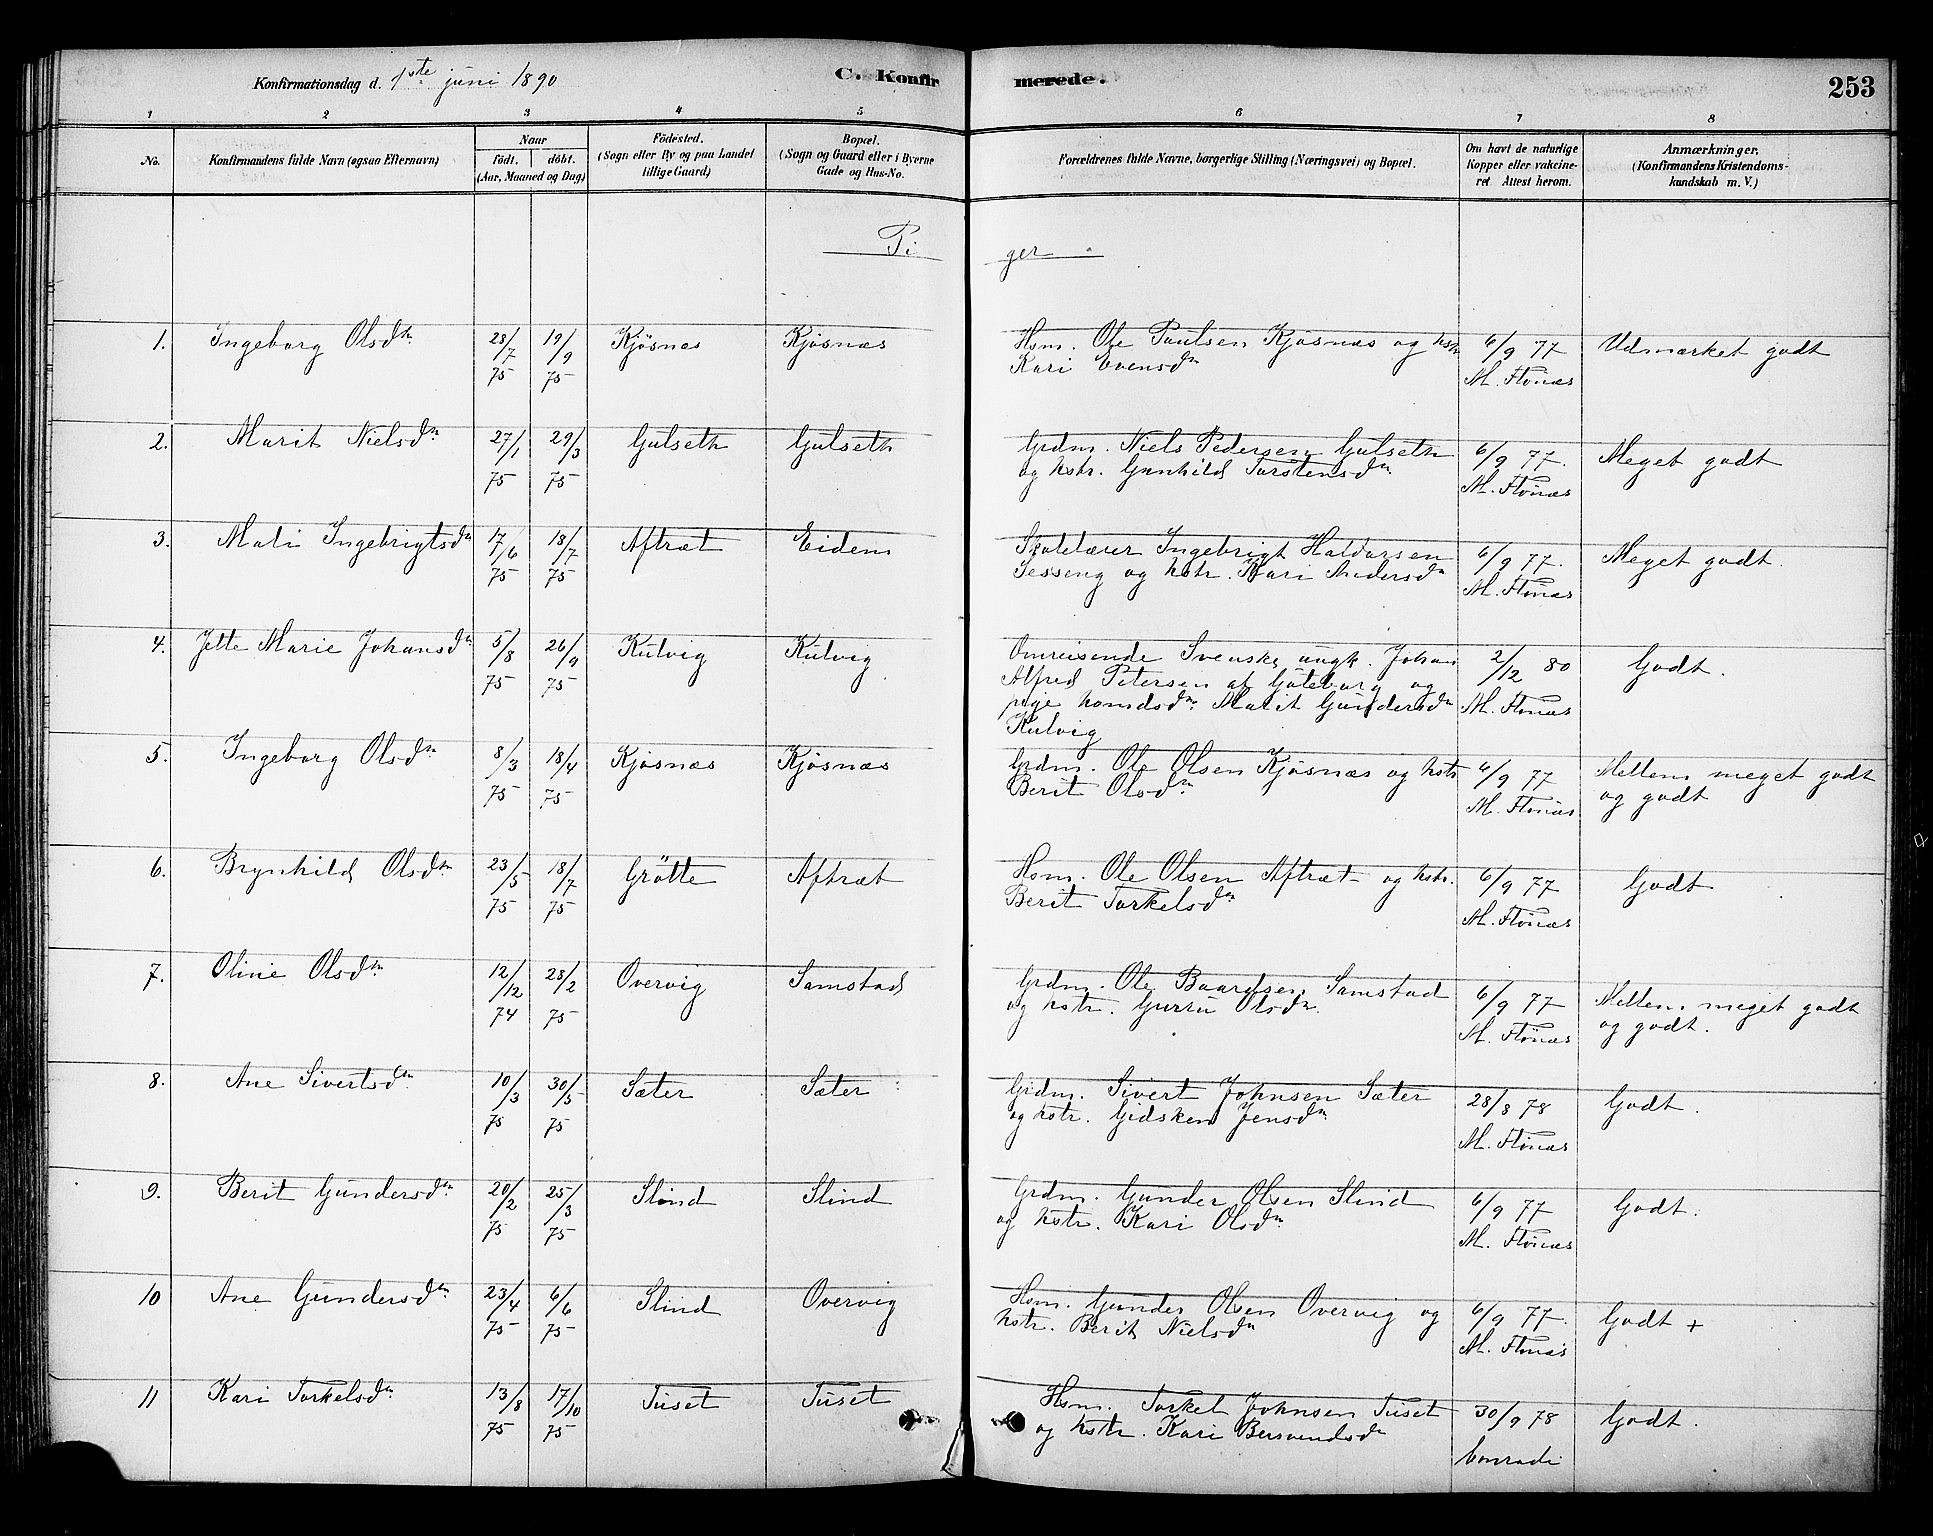 Konfirmationsdag d. 1ste juni 1890
C. Konfirmerede.
253
1 2 3 4 5 6 7 8
No.
Konfirmandens fulde Navn (ogsaa Efternavn)
Naar
födt. döbt.
(Aar, Maaned og Dag)
Födested.
(Sogn eller By og paa Landet
tillige Gaard)
Bopæl.
(Sogn og Gaard eller i Byerne
Gade og Hus-No.
Forældrenes fulde Navne, borgerlige Stilling (Næringsvei) og Bopæl.
Om havt de naturlige
Kopper eller vakcine-
ret Attest herom.
Anmærkninger.
(Konfirmandens Kristendoms-
kundskab m. V.)
Piger
1. Ingeborg Olsdtr 28/7 75 19/9 75 Kjösnæs Kjösnæs
Hsm. Ole Paulsen Kjösnæs og hstr
Kari Evensdtr
6/9 77
M. Flönæs
Udmærket godt
2. Marit Nielsdtr 27/1 75 29/3 75 Gulseth Gulseth
Grdm. Niels Pedersen Gulseth
og hstr. Gunhild Torstensdtr
6/9 77.
M. Flönæs
Meget godt
3. Mali Ingebrigtsdtr 17/6 75 18/7 75 Aftræt Eidem
Skolelærer Ingebrigt Haldorsen
Sesseng og hstr. Kari Andersdtr
6/9 77.
M. Flönæs
Meget godt.
4. Jette Marie Johansdtr 5/8 75 26/9 75 Kulvig Kulvig
Omreisende Svenske ungk. Johan
Alfred Petersen af Göteborg og
pige husmdsdtr. Marit Gundersdtr
Kulvig
2/12 80
M. Flönæs
Godt.
5. Ingeborg Olsdtr 8/3 75 18/4 75 Kjösnæs Kjösnæs
Grdm. Ole Olsen Kjösnæs og hstr
Berit Olsdtr
6/9 77
M. Flönæs
Mellem meget godt
og godt
6. Brynhild Olsdtr 23/5 75 18/7 75 Grötte Aftræt
Hsm. Ole Olsen Aftræt og hstr.
Berit Torkelsdtr
6/9 77
M. Flönæs
Godt
7. Oline Olsdtr 12/12 74 28/2 75 Overvig Samstad
Grdm. Ole Baardsen Samstad
og hstr. Gurru Olsdtr.
6/9 77
M. Flönæs
Mellem meget godt
og godt.
8. Ane Sivertsdtr 10/3 75 30/5 75 Sæter Sæter
Grdm. Sivert Johnsen Sæter
og hstr. Gidsken Jensdtr
28/8 78
M. Flönæs
Godt.
9. Berit Gundersdtr 20/2 75 25/3 75 Slind Slind
Grdm. Gunder Olsen Slind
og hstr. Kari Olsdtr
6/9 77
M. Flönæs
Godt.
10 Ane Gundersdtr 23/4 75 6/6 75 Slind Overvig
Hsm. Gunder Olsen Overvig og
hstr. Berit Nielsdtr
6/9 77.
M. Flönæs
Godt +
11 Kari Torkelsdtr 13/8 75 17/10 75 Tuset Tuset
Hsm. Torkel Johnsen Tuset
og hstr. Kari Bersvendsdtr
30/9 78
Conradi
Godt.